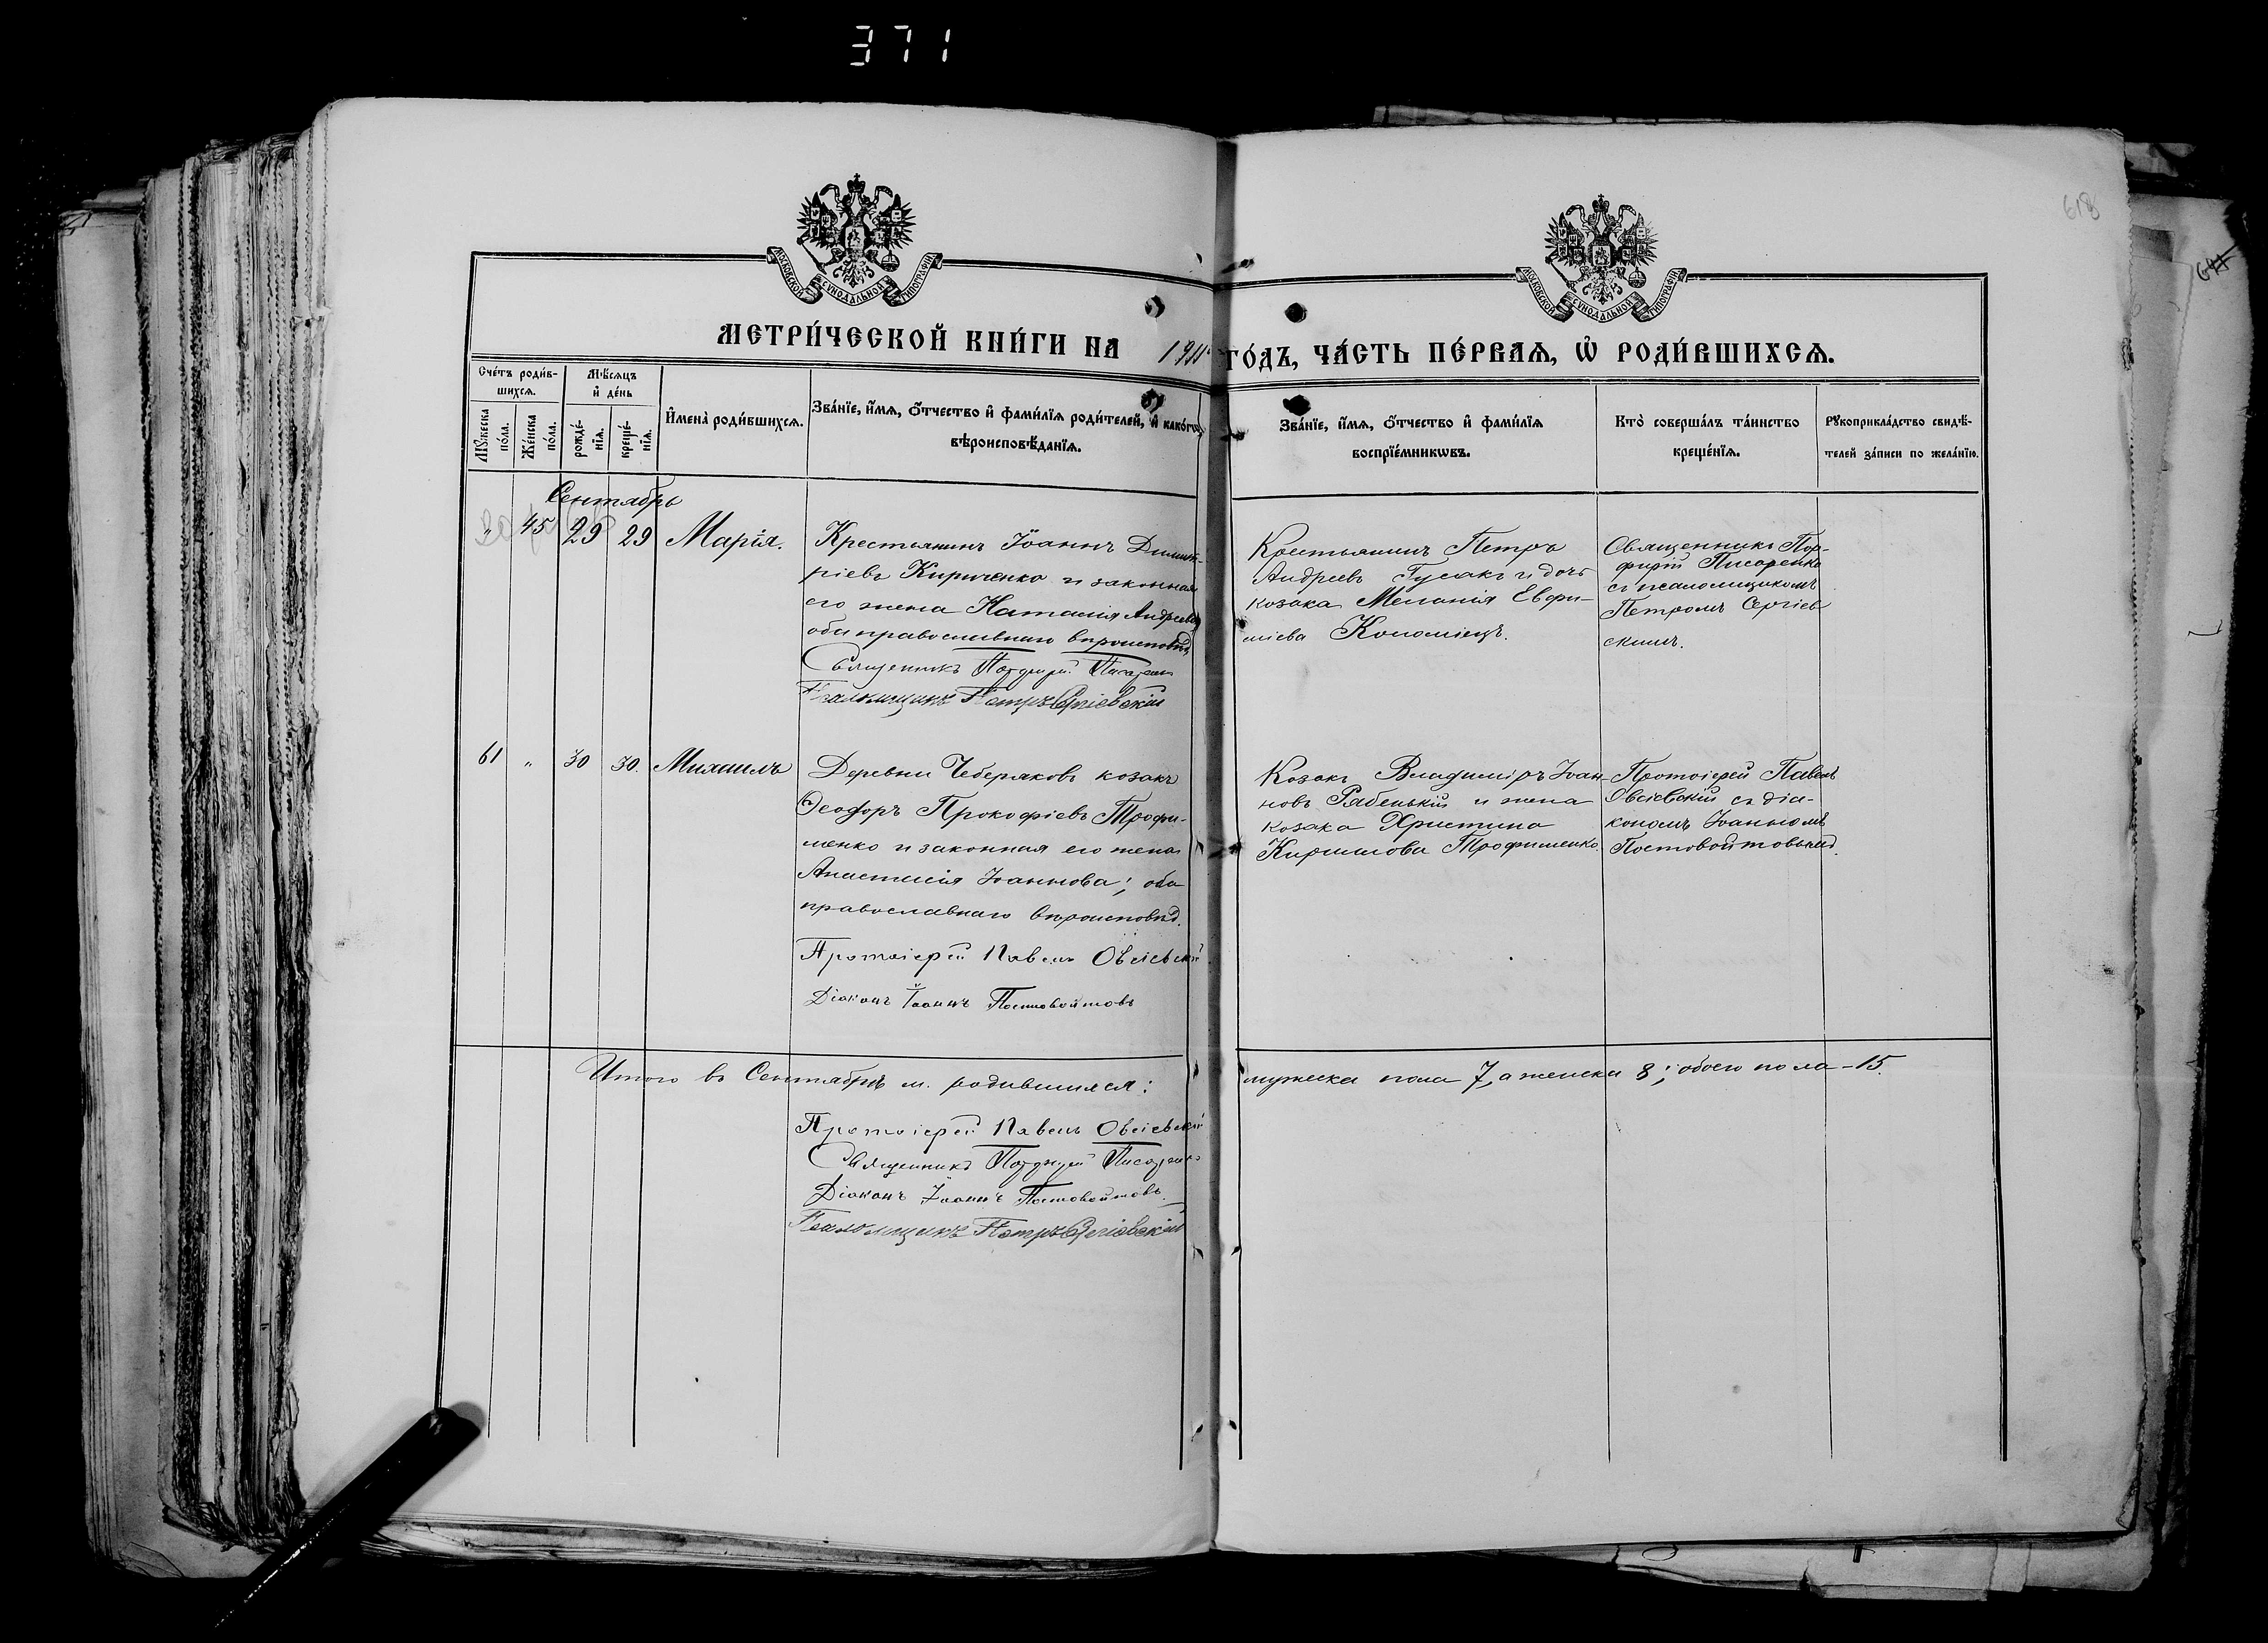 371
618
МОСКОВСКОЙ СѴНОДАЛЬНОЙ ТИПОГРАФІИ
МОСКОВСКОЙ СѴНОДАЛЬНОЙ ТИПОГРАФІИ
МЕТРИ́ЧЕСКОЙ КНИ́ГИ НА 1911 ГО́ДЪ, ЧА́СТЬ ПЕ́РВАѦ, Ѽ РОДИ́ВШИХСѦ.
Сче́тъ роди́в-
шихсѧ.
Мѣ́сѧцъ
и҆ де́нь
Мꙋ́жеска
по́ла.
Же́нска
по́ла.
рожде́-
нїѧ.
креще́-
нїѧ.
И҆мена̀ роди́вшихсѧ.
Зва́нїе, и҆́мѧ, ѻ҆́тчество и҆ фами́лїѧ роди́телей, и҆ како́гѡ
вѣроисповѣ́данїѧ.
Зва́нїе, и҆́мѧ, ѻ҆́тчество и҆ фами́лїѧ
воспрїе́мникѡвъ.
Кто̀ соверша́лъ та́инство
креще́нїѧ.
Рꙋкоприкла́дство свидѣ́-
телей за́писи по жела́нїю.
Сентябрь
" 45 29 29 Марія.
Крестьянинъ Іоаннъ Димит-
ріевъ Кириченко и законная
его жена Наталія Андреева
оба православнаго вѣроисповѣд.
Священникъ Порфирій Писаренко
Псаломщикъ Петръ Сергіевскій
Крестьянинъ Петръ
Андреевъ Гусакъ и дочь
козака Меланія Евфи-
міева Коломіецъ.
Священникъ Пор-
фирій Писаренко
съ псаломщикомъ
Петромъ Сергіев
скимъ.
61 " 30 30. Михаилъ
Деревни Чеберяковъ козакъ
Ѳеодоръ Прокофіевъ Трофи-
менко и законная его жена
Анастасія Іоаннова; оба
православнаго вѣроисповѣд.
Протоіерей Павелъ Овсіевскій
Діаконъ Іоаннъ Постовойтовъ
Козакъ Владиміръ Іоан-
новъ Рябенькій и жена
козака Христина
Кириллова Трофименко.
Протоіерей Павелъ
Овсіевскій съ діа-
кономъ Іоанномъ
Постовойтовымъ.
Итого въ Сентябрѣ м. родившихся: мужска пола 7, а женска 8; обоего пола – 15.
Протоіерей Павелъ Овсіевскій
Священникъ Порфирій Писаренко
Діаконъ Іоаннъ Постовойтовъ.
Псаломщикъ Петръ Сергіевскій